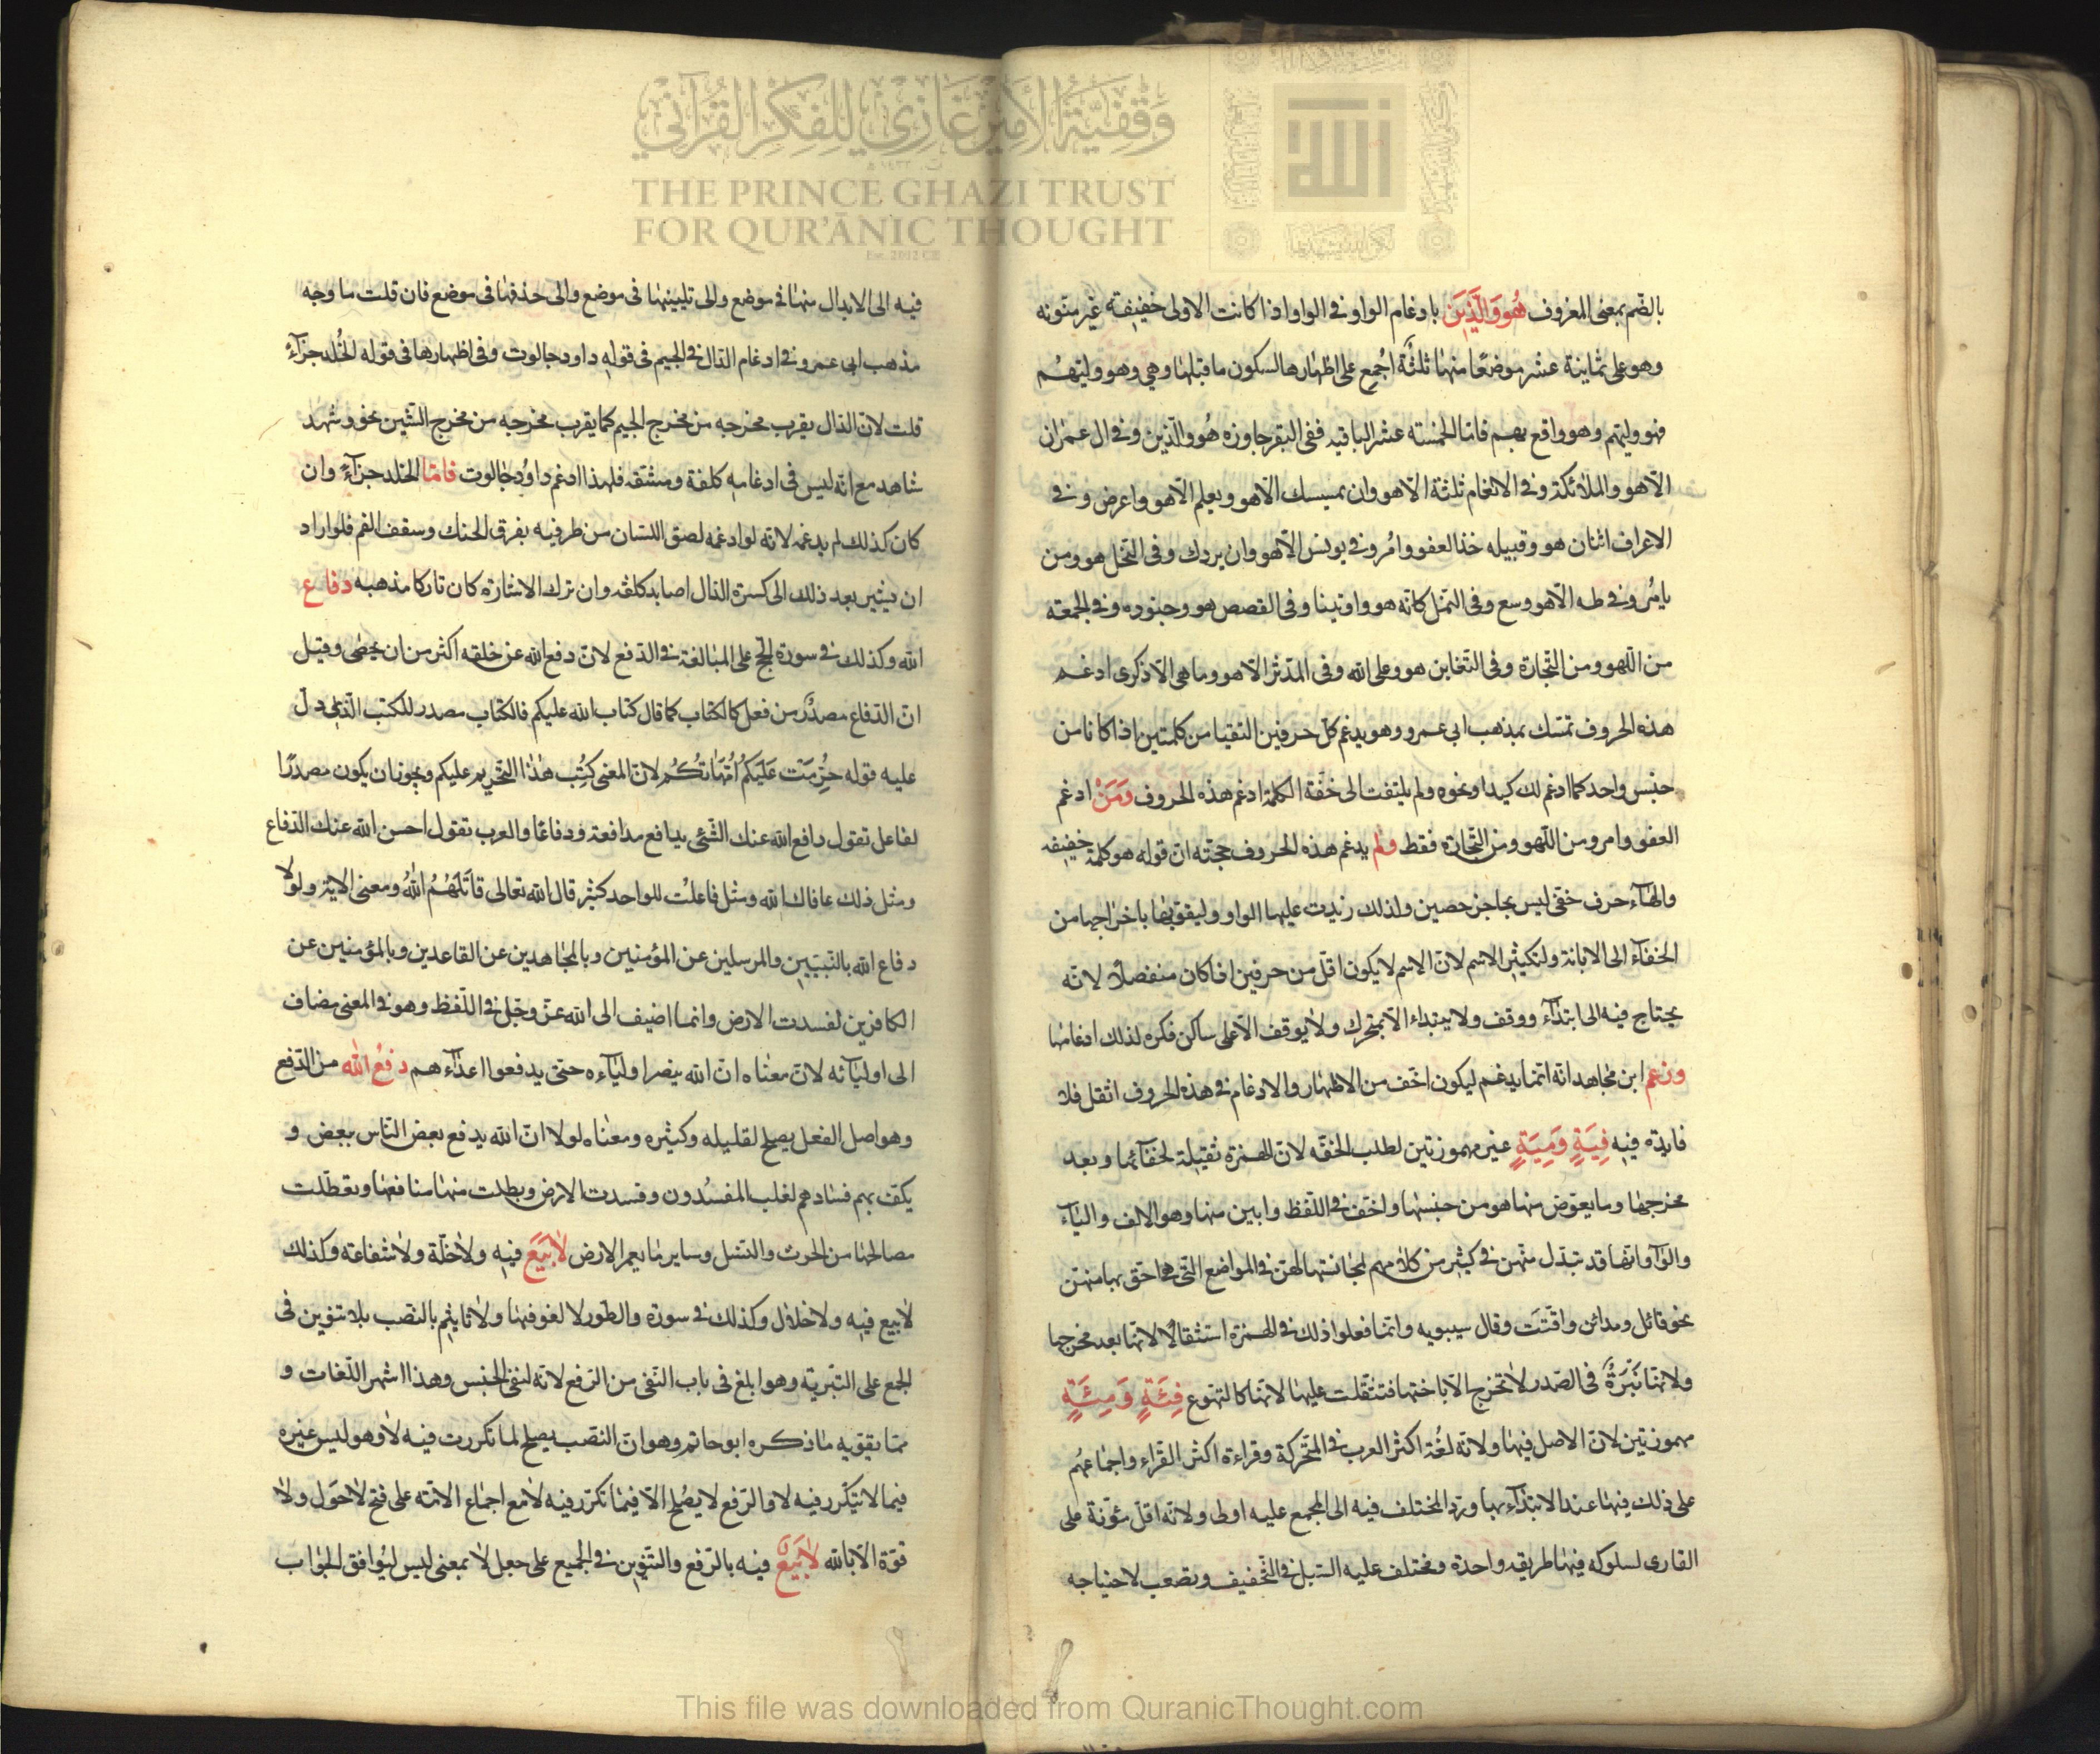 وقفية الأمير غازي للفكر القرآني
THE PRINCE GHAZI TRUST
FOR QUR'ĀNIC THOUGHT
Est. 2012 CE
الله
بالضّم بمعنى المعروف هُوَ وَالَّذِينَ بادغام الواو فى الواو اذا كانت الاولى خفيفة غير منونه
وهو على ثمانية عشر موضعًا منها ثلثة اُجمع على اظهارها لسكون ما قبلها وهى وهو وليّهم
فهو وليّهم وهو واقع بهم فامّا الخمسته عشر الباقيه ففى البقر جاوزه هُو والّذين وفى ال عمران
الّا هو والملائكة وفى الانعام ثلثة الّا هو وان يمسسك الّا هو ويعلم الّا هو واعرض وفى
الاعراف اثنان هو وقبيله خذ العفو وامُر وفى يونس الّا هو وان يردك وفى النّحل هو ومن
يامُر وفى طه الّا هو وسع وفى النّمل كانّه هو واوتينا وفى القصص هو وجنوده وفى الجمعة
من اللّهو ومن التّجارة وفى التّغابن هو وعلى الله وفى المدّثر الّا هو وما هى الّا ذكرى ادغم
هذه الحروف تمسّك بمذهب ابى عمرو وهو يدغم كلّ حرفين التقيا من كلمتين اذا كانا من
جنس واحد كما ادغم لك كيدا ونحوه ولم يلتفت الى خفّة الكلمة ادغم هذه الحروف وَمَنْ ادغم
العفو وامر ومن اللّهو ومن التّجارة فقط ولم يدغم هذه الحروف حجّته انّ قوله هو كلمة خفيفه
والهآء حرف خفىّ ليس بحاجز حصين ولذلك زيدت عليها الواو وليقوّيها باخراجها من
الخفآء الى الابانة ولتكثير الاسم لانّ الاسم لا يكون اقلّ من حرفين اذا كان منفصلا لانّه
يحتاج فيه الى ابتدآء ووقف ولا يبتداء الّا بمتحرك ولا يوقف الّا على ساكن فكره لذلك ادغامها
وزعم ابن مجاهد انّه انّما يدغم ليكون اخفّ من الاظهار والادغام فى هذه الحروف اثقل فلا
فايدة فيه فِيَةٍ وَمِيَةٍ غير مهموزتين لطلب الخفّه لانّ الهمزة ثقيلة لخفآئها وبعد
مخرجها وما يعوّض منها هو من جنسها واخفّ فى اللّفظ وابين منها وهو الالف واليآء
والوآو انّها قد تبدّل منهن فى كثير من كلامهم لمجانستها لهنّ فى المواضع التّى هى احقّ بها منهنّ
نحو قائل ومدائن واقّتَت وقال سيبويه وانّما فعلوا ذلك فى الهمزة استثقالًا لانّها بعد مخرجها
ولانّها نَبْرَةٌ فى الصّدر لا تخرج الّا باختها فتثقّلت عليها لانّها كالتهوّع فِئَةٍ وَمِئَةٍ
مهموزتين لانّ الاصل فيها ولانّه لغُة اكثر العرب فى المتحركة وقراءة اكثر القّراء واجماعهُم
على ذلك فيها عند الابتدآء بها وردّ المختلف فيه الى المجمع عليه اولى ولانّه اقلّ مئونة على
القارى لسلوكه فيها طريقه واحدة ومختلف عليه السّبل فى التّخفيف وتصعب لاحتياجه
فيه الى الابدال منها فى موضع والى تليينها فى موضع والى حذفها فى موضع فان قلت ما وجه
مذهب ابى عمرو فى ادغام الدّال فى الجيم فى قوله داود جالوت وفى اظهارها فى قوله الخُلد جزآءً
قلت لانّ الدّال يقرب مخرجه من مخرج الجيم كما يقرب مخرجه من مخرج الشّين نحو وشهد
شاهد مع انّه ليس فى ادغامه كلفة ومشقه فلهذا ادغم داوُد جالوت فامّا الخلد جزآءً وان
كان كذلك لم يدغمه لانّه لو ادغمه لصق اللّسان من طرفيه بفرق الحنك وسقف الفم فلو اراد
ان يشير بعد ذلك الى كسرة الدّال اصابه كلفه وان ترك الاشارة كان تاركا مذهبه دفاع
الله وكذلك فى سورة الحّج على المبالغة فى الدّفع لانّ دفع الله عن خلقه اكثر من ان يحصى وقيل
انّ الدّفاع مصدر من فعل كالكتاب كما قال كتاب الله عليكم فالكتاب مصدر لكتب الّذى دلّ
عليه قوله حُرِّمَت عَلَيكُم اُمَّهَاتكُم لانّ المعنى كُتِب هٰذا التّحريم عليكم ويجوز ان يكون مصدرًا
لفاعل تقول دافع الله عنك الشّئ يدافع مدافعة ودفاعًا والعرب تقول احسن الله عنك الدّفاع
ومثل ذلك عافاك الله ومثل فاعلت للواحد كثير قال الله تعالى قاتَلَهُمُ اللهُ ومعنى الآية ولولا
دفاع الله بالنّبيّين والمرسلين عن المؤمنين وبالمجاهدين عن القاعدين وبالمؤمنين عن
الكافرين لفسدت الارض وانما اضيف الى الله عزّ وجّل فى اللّفظ وهو فى المعنى مضاف
الى اوليآئه لانّ معناه انّ الله ينصر اوليآءه حتى يدفعوا اعدآءهم دفعُ الله من الدّفع
وهو اصل الفعل يصلح لقليله وكثيره ومعناه لولا انّ الله يدفع بعض النّاس ببعض و
يكفّ بهم فسادهم لغلب المفسُدون وفسدت الارض وبطلت منها منافعها وتعطّلت
مصالحها من الحرث والنّسل وساير ما يعمر الارض لَا بَيْعَ فيه ولا خلّة ولا شفاعة وكذلك
لا بيع فيه ولا خلال وكذلك فى سورة والطّور لا لغو فيها ولا تاثيم بالنّصب بلا تنوين فى
الجمع على التّبرية وهو ابلغ فى باب النّفى من الرّفع لانّه لنفى الجنس وهذا اشهر اللّغات و
ممّا يقوّيه ما ذكره ابو حاتم وهو انّ النّصب يصلح لما تكررت فيه لا وهو ليس غيره
فيما لا يتكّرر فيه لا والرّفع لا يصُلح الّا فيما تكرّر فيه لا مع اجماع الامّة على فتح لا حَول ولا
قوّة الّا بالله لَا بَيْعٌ فيه بالرّفع والتّنوين فى الجميع على جعل لا بمعنى ليس ليُوافق الجواب
This file was downloaded from QuranicThought.com